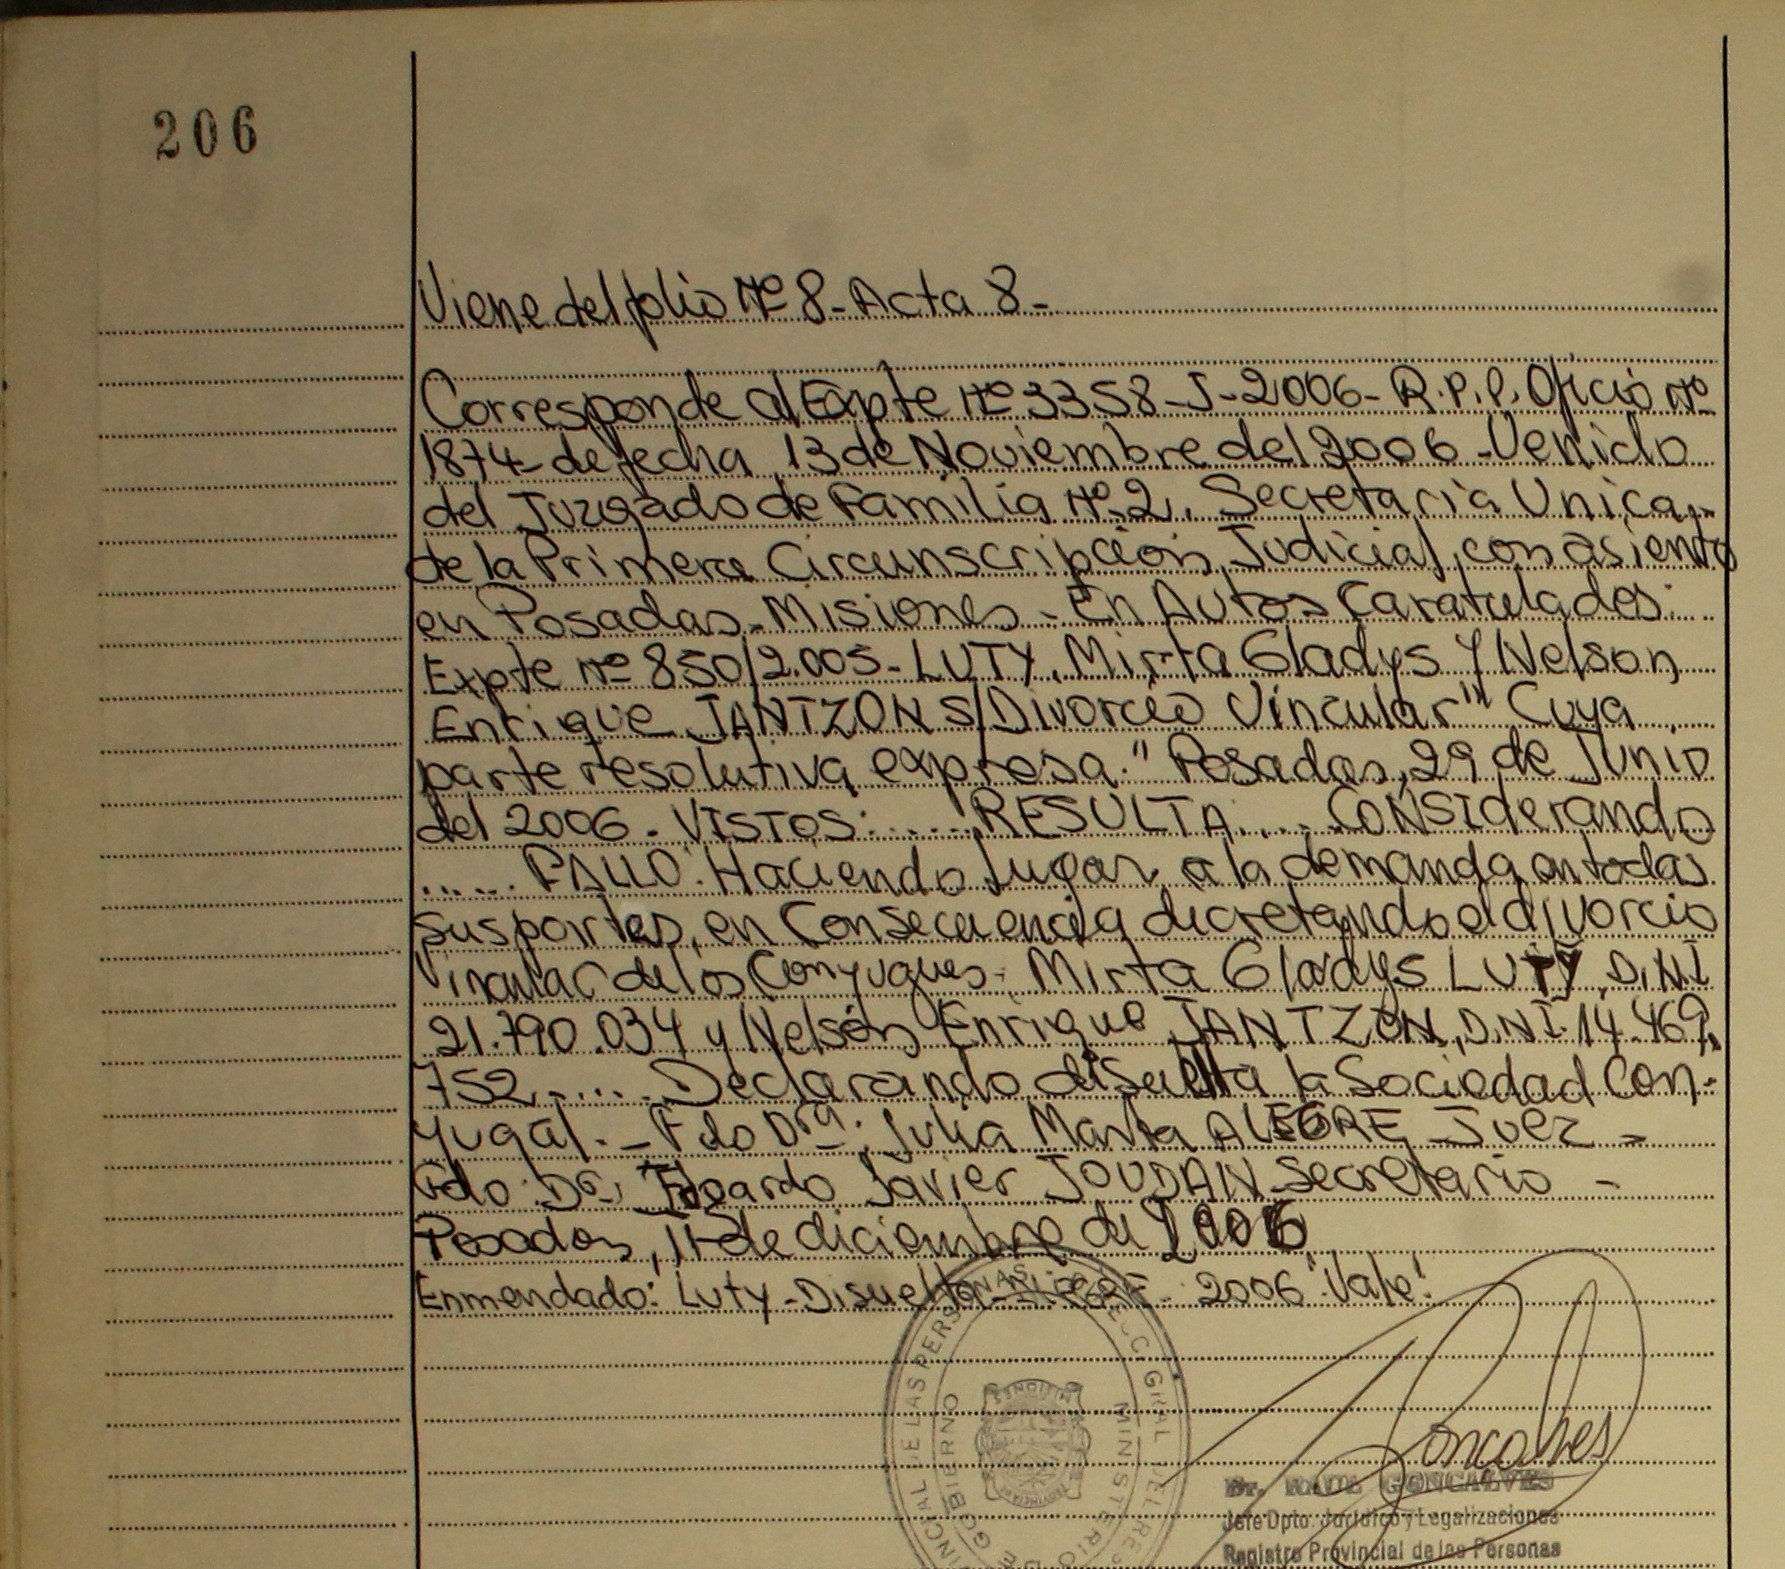 206
Viene del folio Nº 8 - Acta 8 -
Corresponde al Expte Nº 3358 - J - 2006 - R.P.P. Oficio Nº
1874 - de fecha 13 de Noviembre del 2006 - Venido
del Juzgado de Familia Nº 2, Secretaria Unica,
de la Primera Circunscripción Judicial, con asiento
en Posadas - Misiones - En Autos Caratulados:
Expte Nº 850/2.005 - LUTY, Mirta Gladys Y Nelson
Enrique JANTZON S/Divorcio Vincular" Cuya
parte resolutiva expresa: " Posadas, 29 de Junio
del 2006 - VISTOS: ..... RESULTA .... CONSIderando
...... FALLO: Haciendo lugar a la demanda en todas
sus partes, en Consecuencia decretando el divorcio
Vincular de los Conyugues: Mirta Gladys LUTY, D.N.I
21.790.034 y Nelson Enrique JANTZON, D.N.I. 14.469.
752 ..... Declarando disuelta la Sociedad Con-
yugal. - Fdo Drª: Julia Marta ALEGRE - Juez -
Fdo: Dr. Edgardo Javier JOUDAN Secretario -
Posadas, 11 de diciembre de 2006
Enmendado: Luty - Disuelta - ALEGRE - 2006 "Vale"
Goncalves
Dr. RAUL GONCALVES
Jefe Dpto. Jurídico y Legalizaciones
Registro Provincial de las Personas
GOBIERNO
MINISTERIO DE